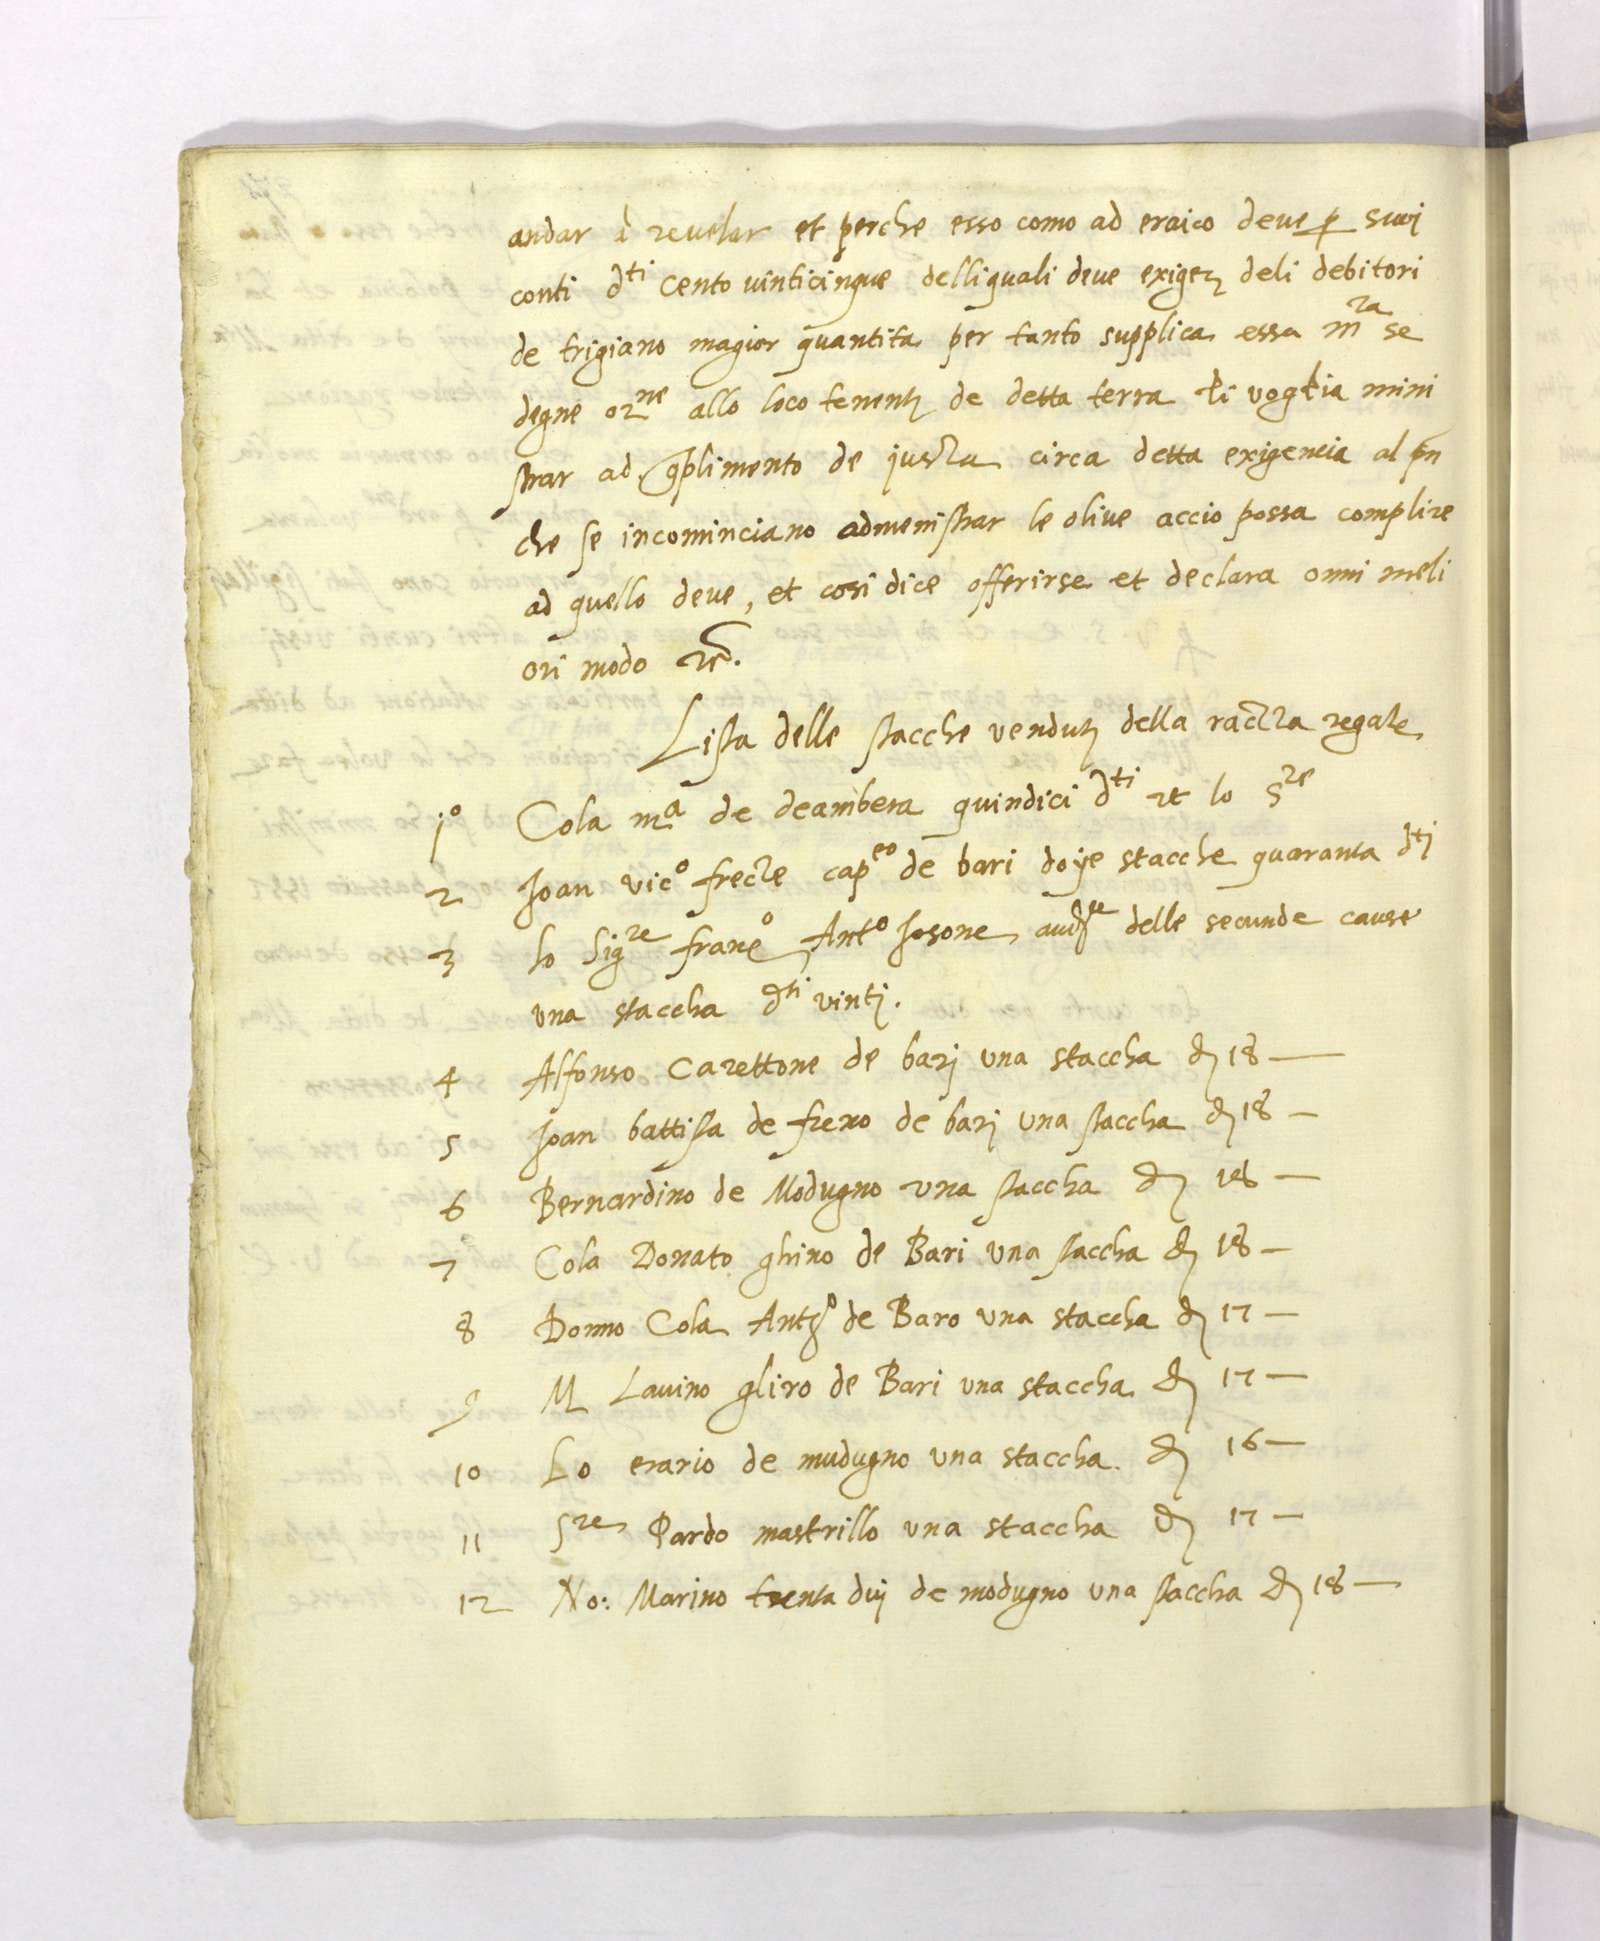 andar à revelar et perche esso como ad eraico deve p suoi
conti dti cento vinticinque delli quali deve exiger deli debitori
de trigiano magior quantita per tanto supplica essa mra se
degne orne allo loco tenente de detta terra li voglia mini
strar ad complimento de justa circa detta exigencia al pn
che se incominciano admenistrar le olive accio possa complire
ad quello deve, et cosi dice offerirse et declara omni meli
ori modo etc.
Lista delle stacche vendute della razza regale
1o Cola ma de deambera quindici dti et lo Sre
2 Joan vico frecze capeo de bari doije stacche quaranta dti
3 lo Sigre franco Anto Josone audre delle secunde cause
una staccha dti vinti.
4 Alfonso Carettone de bari una staccha d 18 —
5 Joan battista de frexo de bari una staccha d 18 —
6 Bernardino de Modugno una staccha d 18 —
7 Cola Donato ghino de Bari una staccha d 18 —
8 Donno Cola Anto de Baro una staccha d 17 —
9 M Lavino gliro de Bari una staccha d 17 —
10 Lo erario de mudugno una staccha d 16 —
11 Sre Pardo mastrillo una staccha d 17 —
12 No: Marino trenta dui de modugno una staccha d 18 —